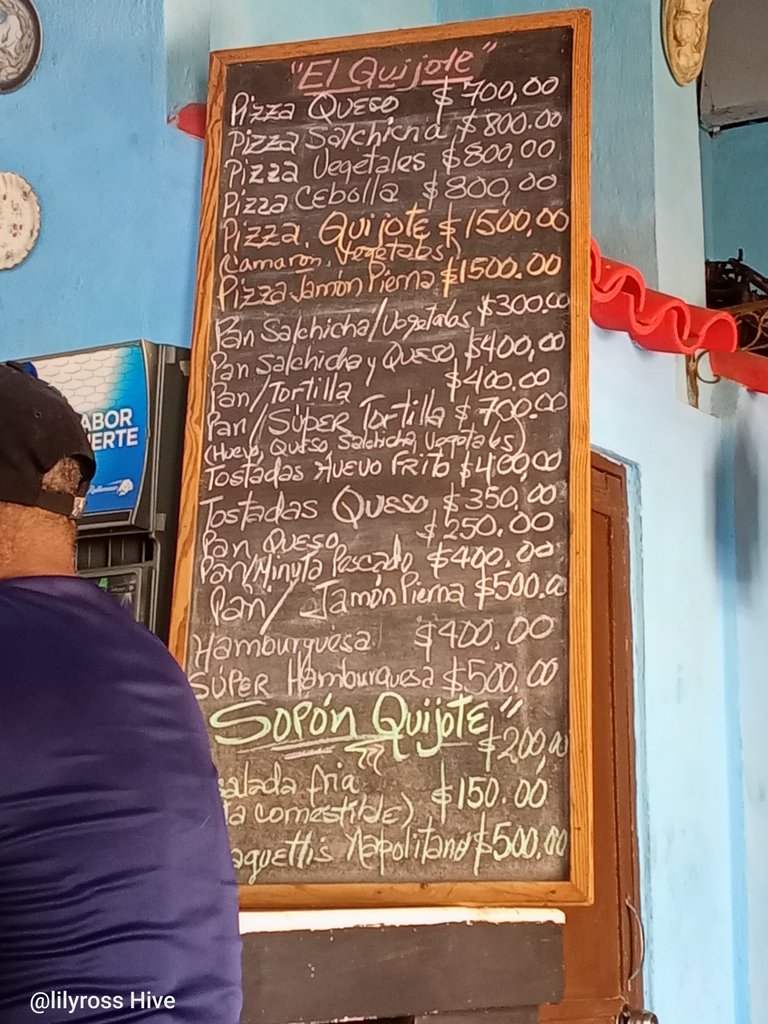 "El Quijote"
Pizza Queso $700,00
Pizza Salchicha $800.00
Pizza Vegetales $800,00
Pizza Cebolla $800,00
Pizza Quijote $1500,00
(Camaron, Vegetales)
Pizza Jamón Pierna $1500.00
Pan Salchicha/Vegetales $300.00
Pan Salchicha y Queso $400,00
Pan/Tortilla $400.00
Pan/Súper Tortilla $700.00
(Huevo, Queso, Salchicha, Vegetales)
Tostadas Huevo Frito $400,00
Tostadas Queso $350,00
Pan Queso $250.00
Pan/Minuta Pescado $400.00
Pan/Jamón Pierna $500.00
Hamburguesa $400.00
SÚPER Hamburguesa $500.00
Sopón Quijote" $200,00
alada fria
ta comestible) $150.00
aguettis Napolitano $500.00
ABOR
ERTE
@lilyross Hive